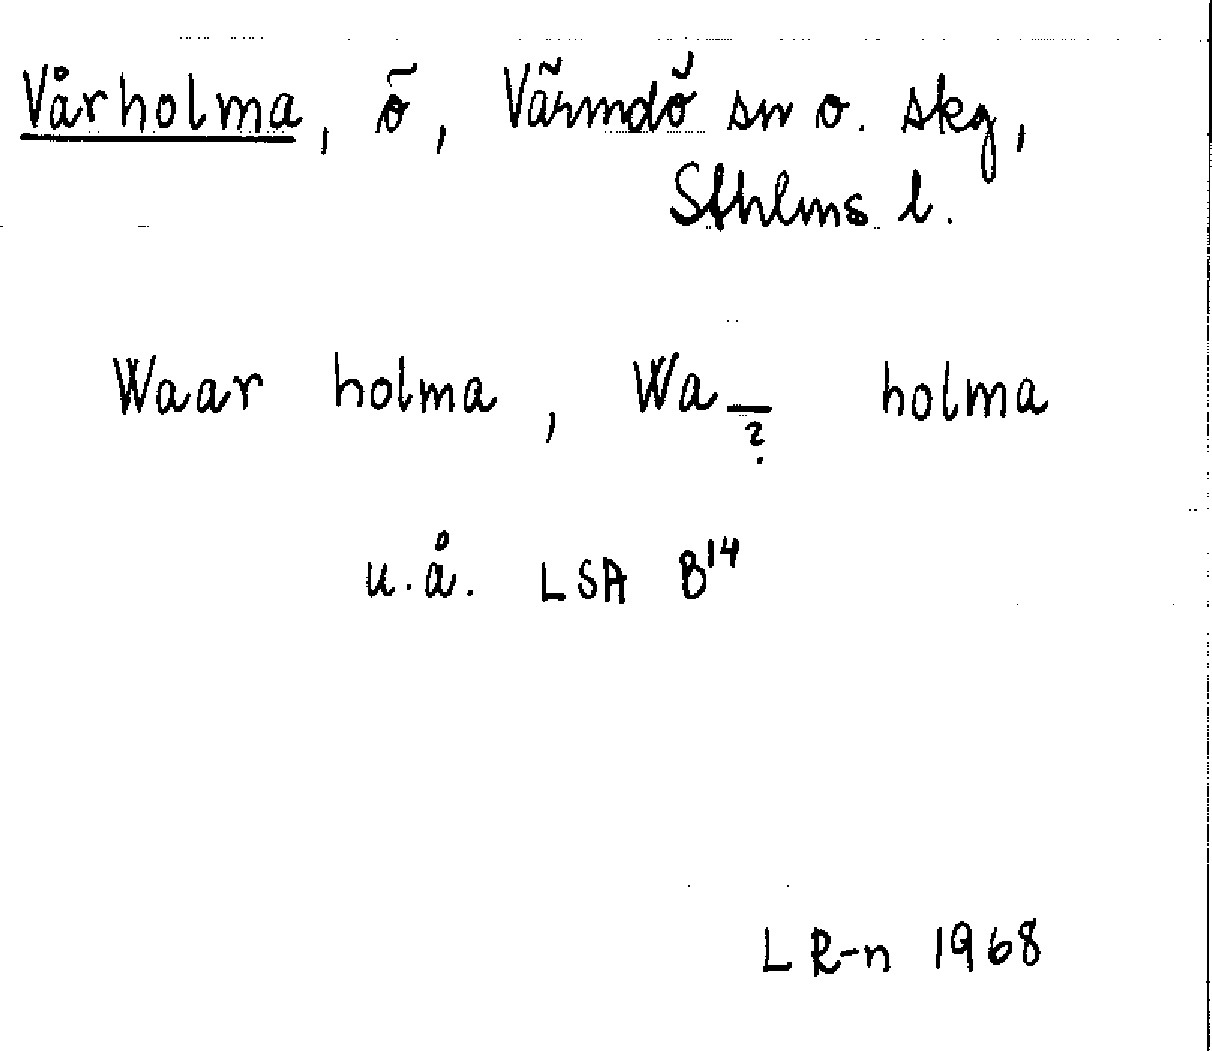 Vårholma, ö, Värmdö sn o. skg,
Sthlms l.
Waar holma, Wa_ holma
?
u.å. LSA B14
L R-n 1968